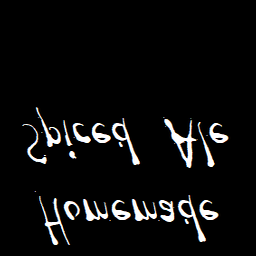 Homemade
Spiced Ale